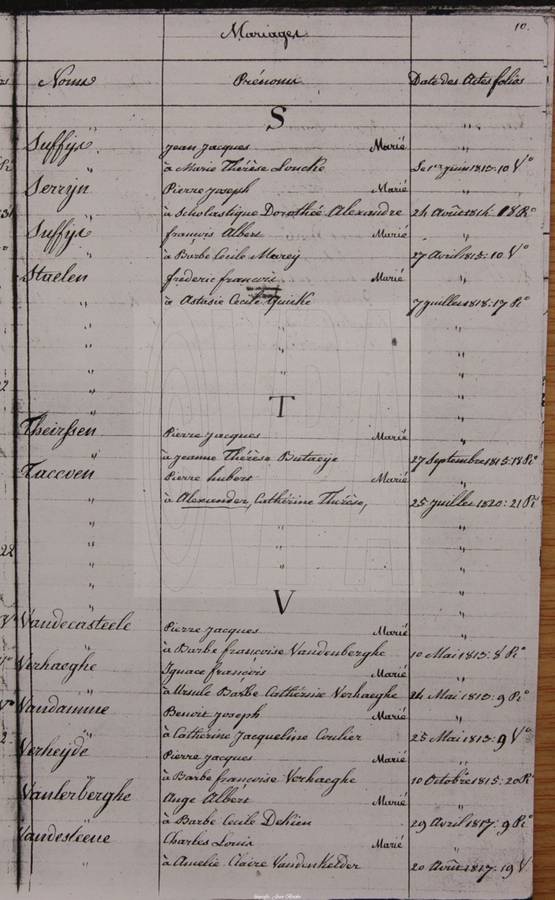 10.
Mariages
Noms Prénoms Date des Actes folios
S
Suffys Jean Jacques Marié
à Marie Thérèse Louche Le 1er juin 1813. 10 Vo
Serryn Pierre Joseph Marié
à Scholastique Dorothée Alexandre 24 Août 1814. 18 Ro
Suffys françois Albert Marié
à Barbe Cécile Marey 27 Avril 1815. 10 Vo
Staelen frederic françois Marié
à Astasie Cecile 7 juillet 1818. 17 Ro
T
Theirssen Pierre Jacques Marié
à jeanne Thérèse Butaeye 27 Septembre 1815. 18 Ro
Taccoen Pierre hubert Marié
à Alexander, Cathérine Thérèse, 25 juillet 1820. 21 Ro
22
V
Vandecasteele Pierre Jacques Marié
à Barbe françoise Vandenberghe 10 Mai 1813. 8 Ro
Verhaeghe Ignace françois Marié
à Ursule Barbe Cathérine Verhaeghe 24 Mai 1813. 9 Ro
Vandamme Benoit Joseph Marié
à Cathérine Jacqueline Coulier 25 Mai 1813. 9 Vo
Verheyde Pierre Jacques Marié
à Barbe françoise Verhaeghe 10 Octobre 1815. 20 Ro
Vanlerberghe Ange Albert Marié
à Barbe Cecile Dehien 29 Avril 1817. 9 Ro
Vandesteene Charles Louis Marié
à Amelie Claire Vandenkelder 20 Août 1817. 19 V